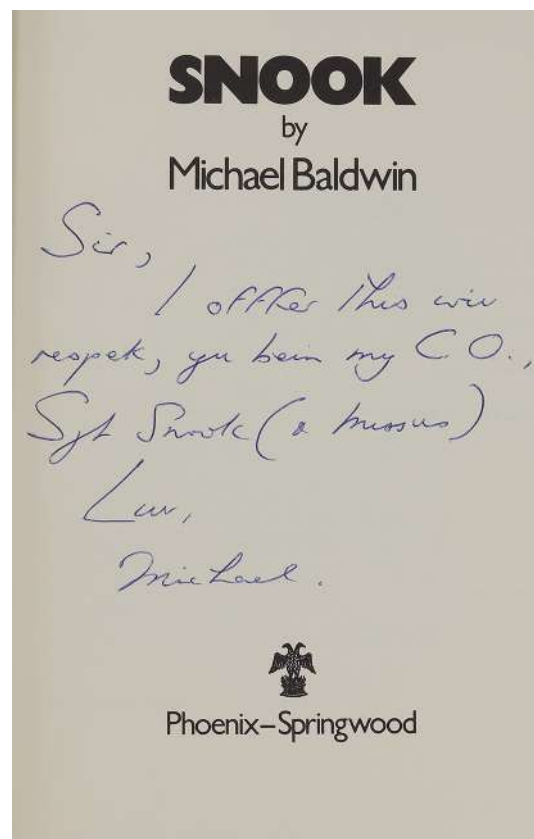 SNOOK
by
Michael Baldwin
Sir,
I offfer this wiv
respek, yu bein my C.O.,
Sgt Snook (& missus)
Luv,
Michael.
Phoenix–Springwood